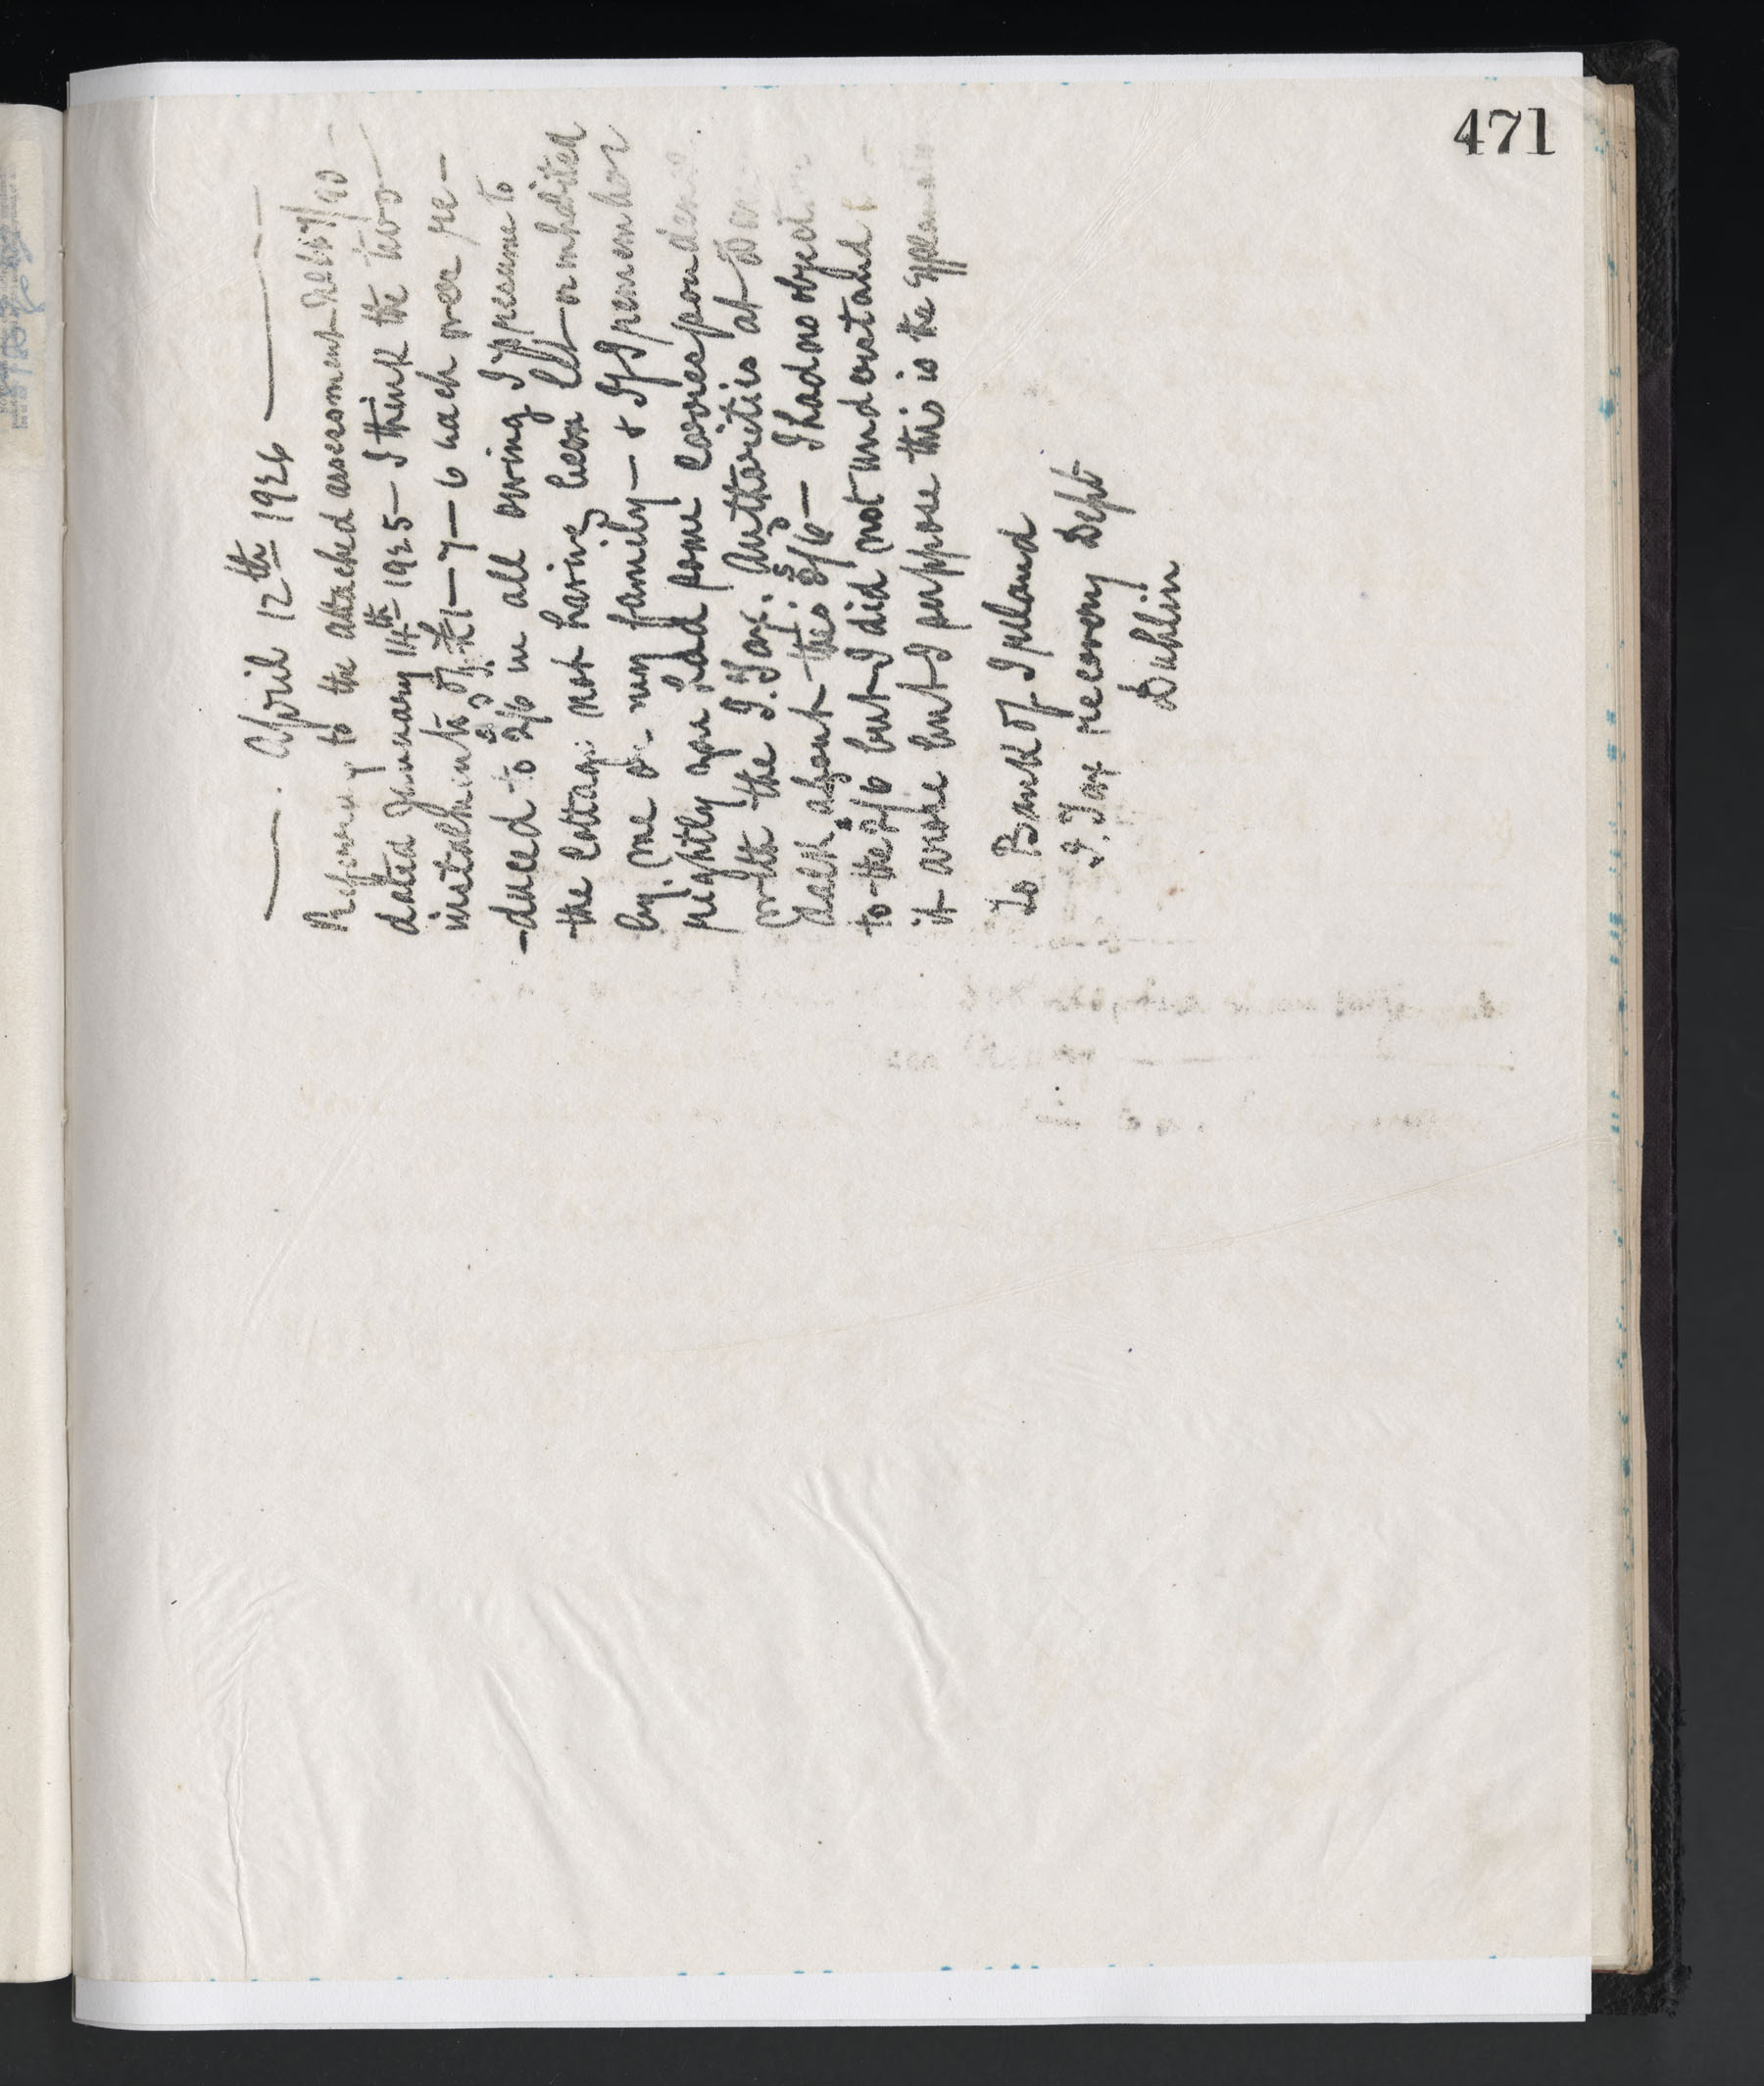 471
April 12th 1926
Referring to the attached assessment
dated January 14th 1925 – I think the two
instalments of £1–7–6 each over re–
–duced to 2/6 in all owing I presume to
the cottage not having been let or inhabited
by me or my family – & If I remember
rightly you had some correspondence
with the I. Tax. Authorities at
about this 2/6 – I had no objection
to the 2/6 but I did not understand
it arose but I suppose this is the
To Bank of Ireland
I. Tax recovery Dept
Dublin